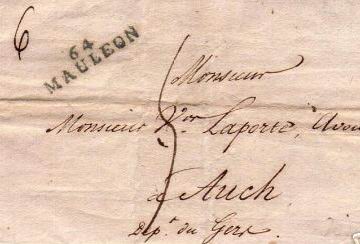 6
64
MAULEON
Monsieur
Monsieur Laporte, Avou
à Auch
Dep.t du Gers.